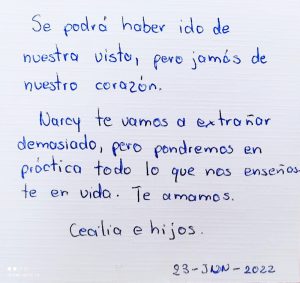 Se podrá haber ido de
nuestra vista, pero jamás de
nuestro corazón.
Narcy te vamos a extrañar
demasiado, pero pondremos en
práctica todo lo que nos enseñas
te en vida. Te amamos.
Cecilia e hijos.
23-JUN-2022